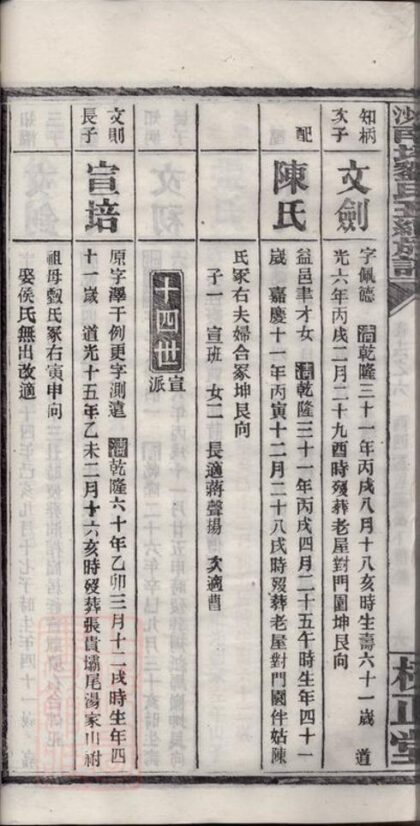 知柄
次子
文劍
字佩德 清乾隆三十一年丙戌八月十八亥時生壽六十一歲 道
光六年丙戌二月二十九酉時歿葬老屋對門園坤艮向
配
陳氏
益邑聿才女 清乾隆三十一年丙戌四月二十五午時生年四十一
歲 嘉慶十一年丙寅十二月二十八戌時歿葬老屋對門園伴姑陳
氏冢右夫婦合冢坤艮向
子一 宣班 女二 長適蔣聲揚 次適曹
十四世
宣派
文則
長子
宣培
原字澤干例更字測遠 清乾隆六十年乙卯三月十一戌時生年四
十一歲 道光十五年乙未二月十六亥時歿葬張貴壩尾湯家山祔
祖母甄氏冢右寅申向
娶侯氏無出改適